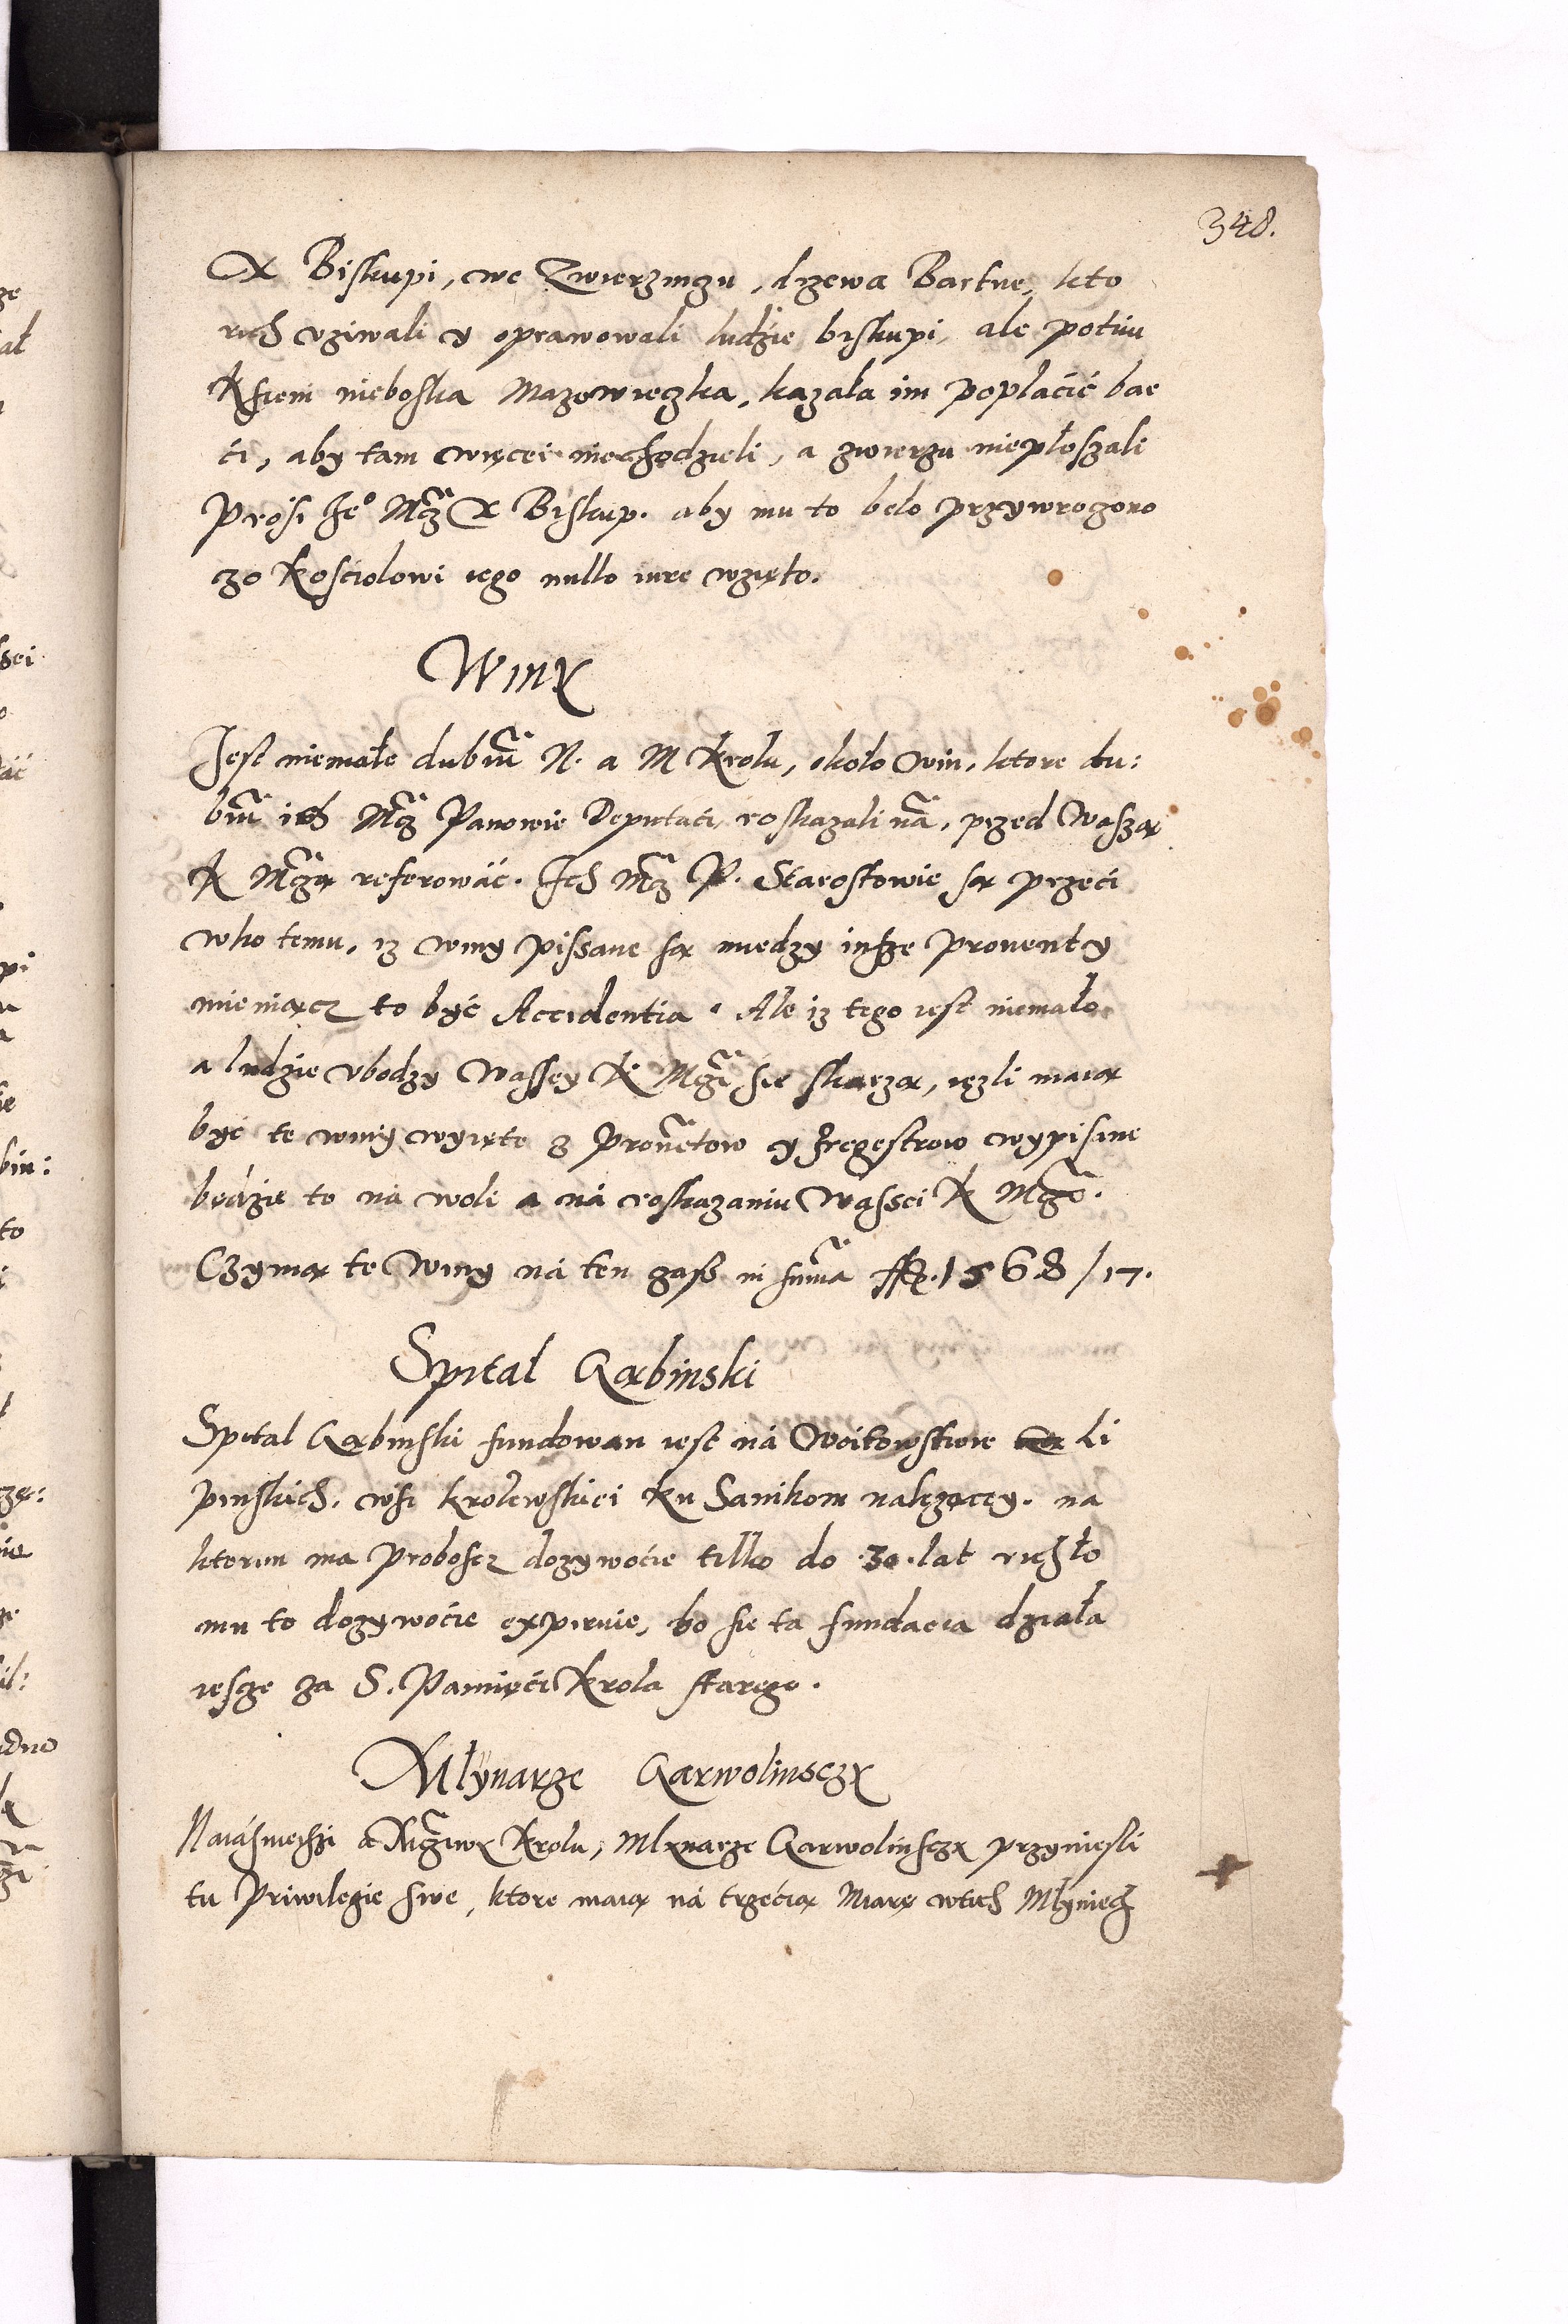 348.
X Biskupi, we Zwierzinczu, drzewa Bartne, kto
rich vziwali y oprawowali ludzie biskupi, ale potim
Xsiem nieboska Mazowieczka, kazala im poplacić bar
ći, aby tam więcei niechodzieli, a zwierzu niepłoszali
Prosi Je° Mcz X Biskup. aby mu to belo przywroczono
zo Kosciolowi iego nullo iure wzięto.
Winy
Jest niemałe dubiu N. a M Krolu, około win, ktore du:
biu ich Mcz Panowie Deputaci roskazali na, przed Waszą
K Mczą referowáć. Ich Mcz P. Starostowie są przeci
wko temu, iz winy pissane są miedzy insze prouenty
mieniącz to być Accidentia. Ale iz tego iest niemało
a ludzie vbodzy Wassey K Mczi sie skarzą, iezli maią
być te winy wyięte z prouetow y zregestrow wypisane
bedzie to ná woli a ná roskazaniu Wassei K Mcze.
Czynią te Winy ná ten czass in suma ff. 1568/17.
Spital Gąbinski
Spital Gąbinski fundowan iest ná Woitowstwie Li
pinskich, wsi krolewskiei ku Sanikom należącey. na
ktorim ma proboscz dozywocie tilko do 30. lat richło
mu to dozywocie expiruie, bo sie ta fundacia działa
iescze za S. Pamięći Krola starego.
Młynarze Garwolinsczy
Naiásnieiszi a Mcziwy Krolu, Mlynarze Garwolinsczy przyniesli
tu Priwilegie swe, ktore maią ná trzecią Miarę wtich Młyniech